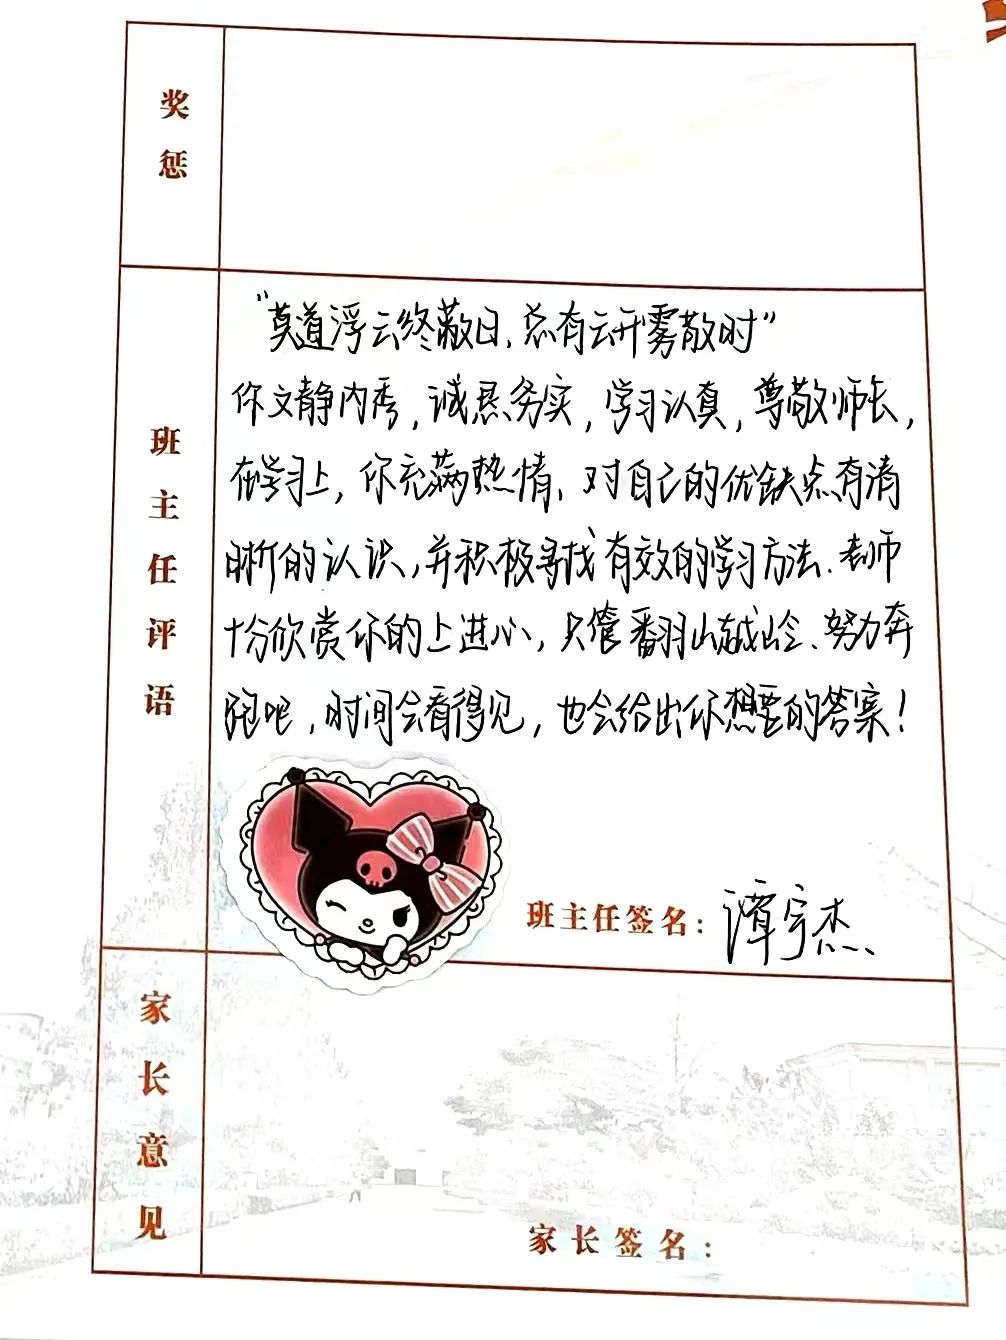 奖惩
班主任评语
“莫道浮云终蔽日,总有云开雾散时”
你文静内秀,诚恳务实,学习认真,尊敬师长,
在学习上,你充满热情、对自己的优缺点有清
晰的认识,并积极寻找有效的学习方法.老师
十分欣赏你的上进心,只管翻山越岭、努力奔
跑吧,时间会看得见,也会给出你想要的答案!
班主任签名:谭宇杰、
家长意见
家长签名: